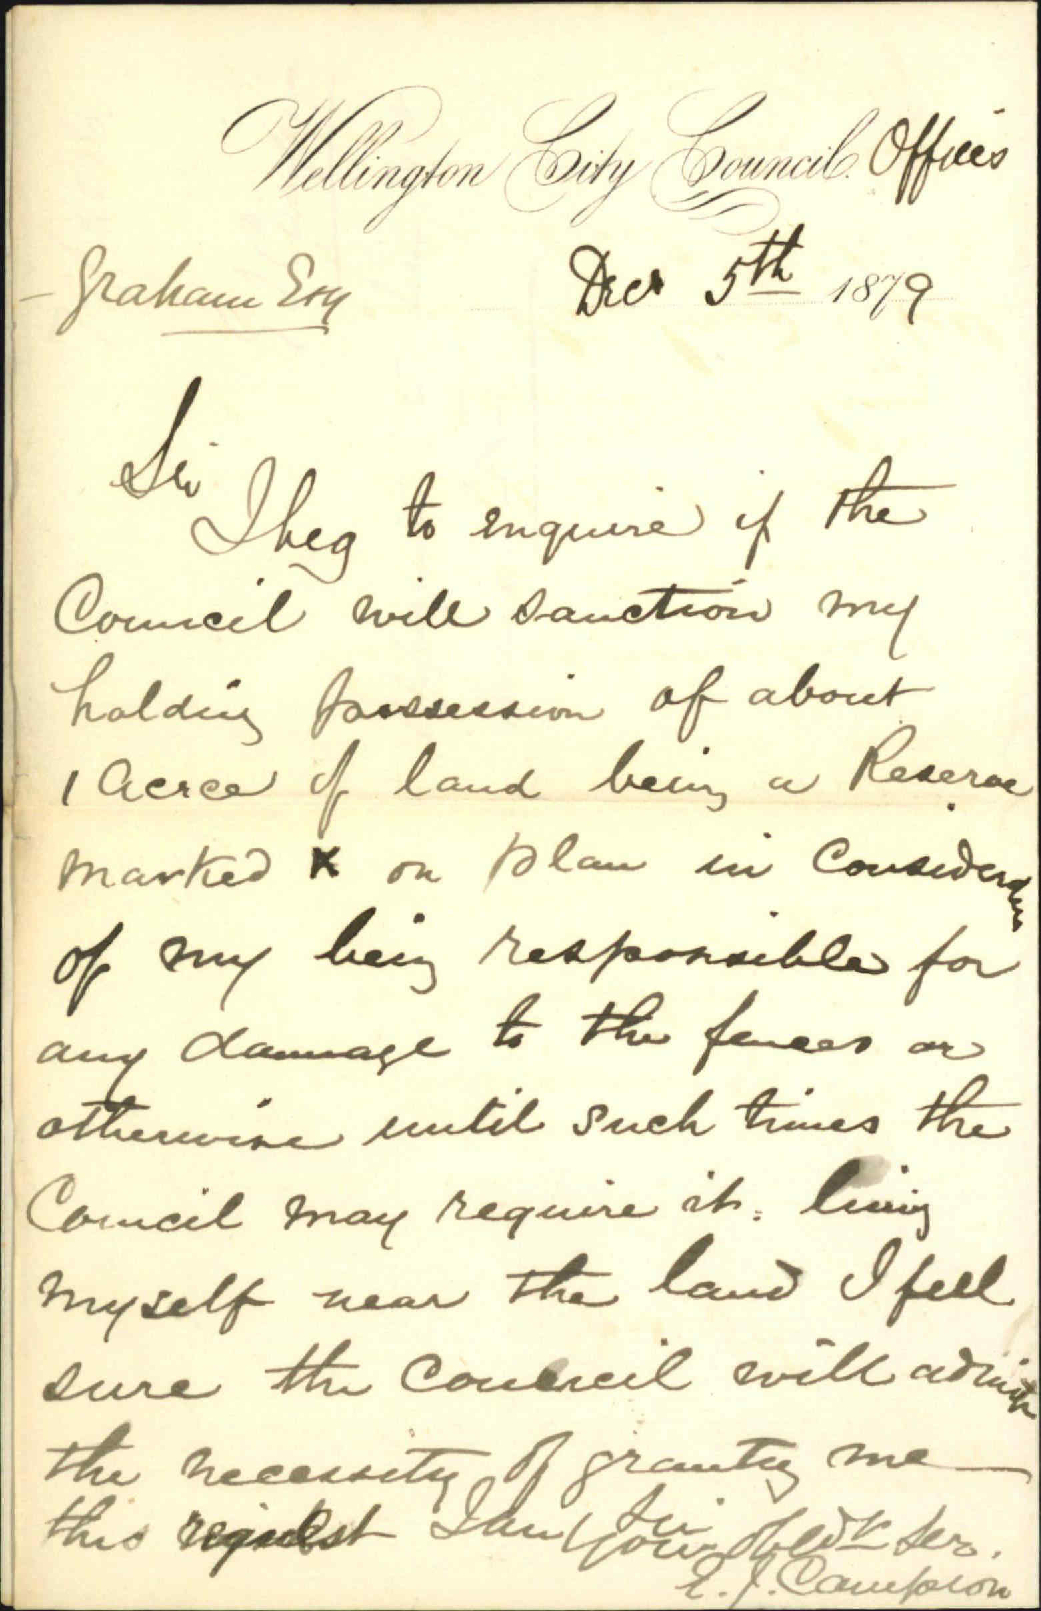 Wellington City Council. Offices
– Graham Esq
Decr 5th 1879
Sir
I beg to enquire if the
Council will sanction my
holding possession of about
1 Acree of land being a Reserve
marked X on plan in Consideration
of my being responsible for
any dammage to the fences or
otherwise until such times the
Council may require it. living
myself near the land I fell
sure the Council will admit
the necessity of granting me
this request I am Sir
Your obedt Ser.
E. J. Campion